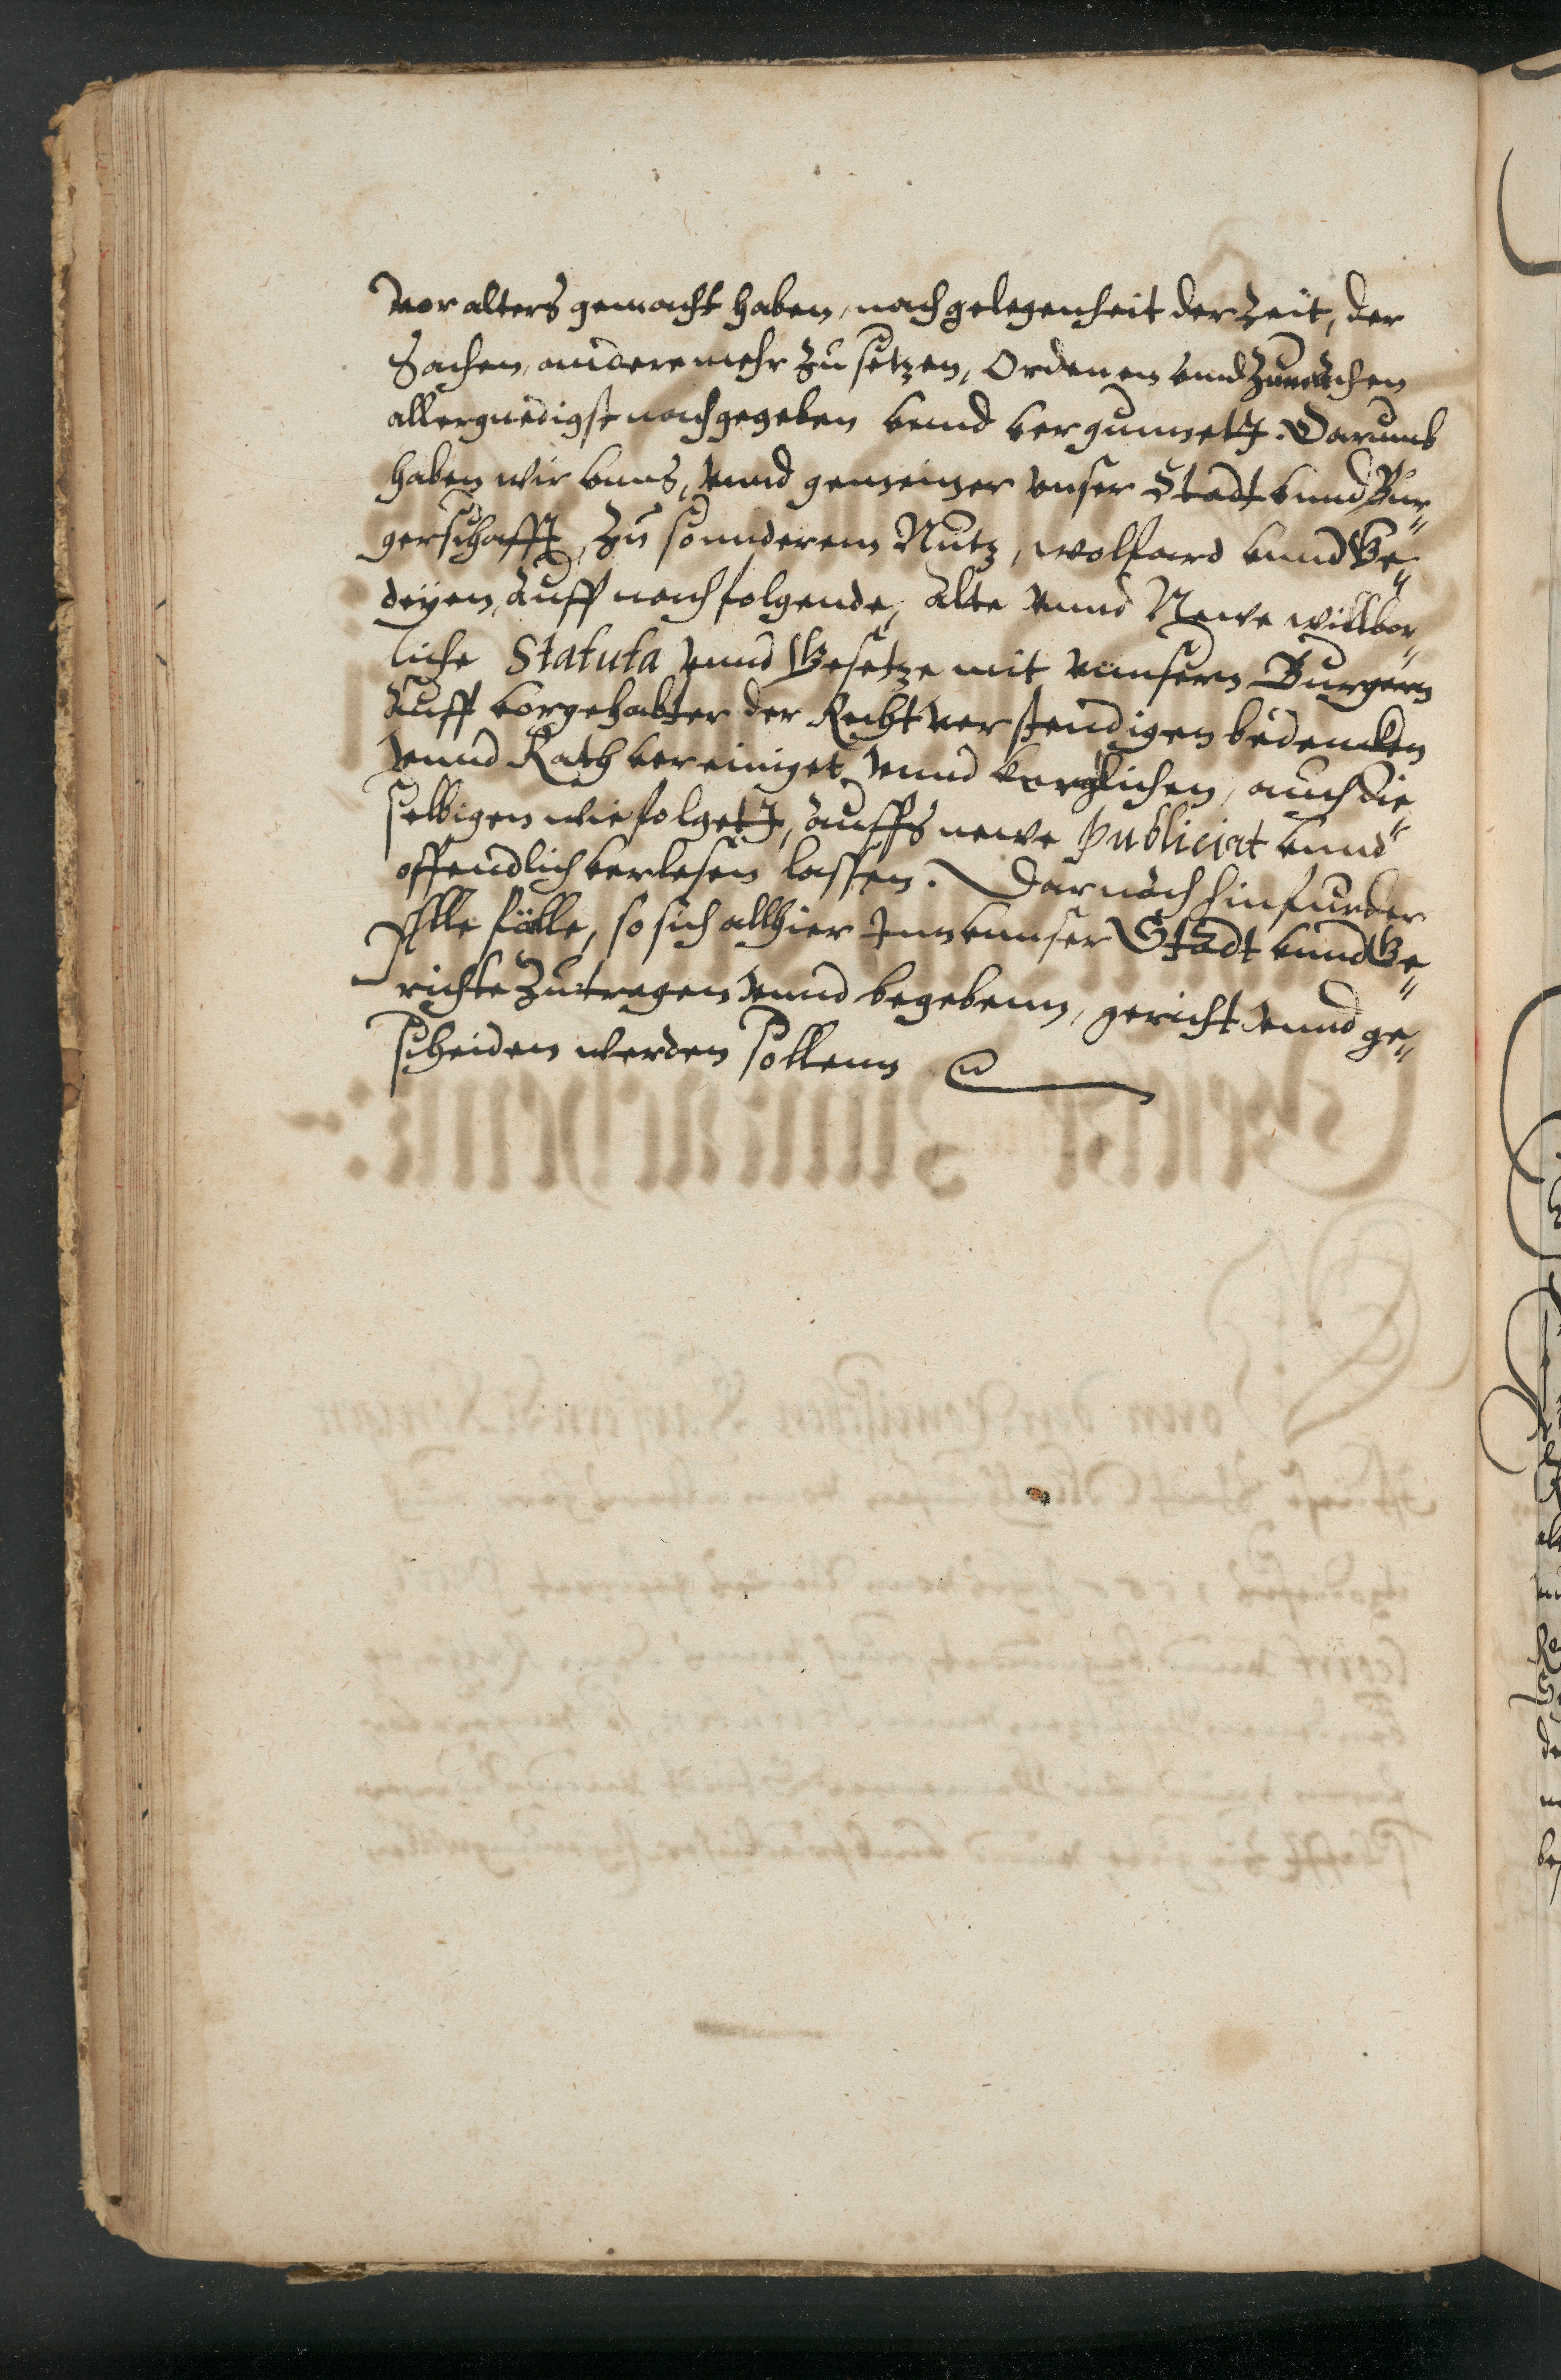 vor alters gemacht haben, nach gelegenheit der Zeit, der
Sachen, andere mehr zu setzen, Ordenen vnd Zumachen
allergnedigst nachgegeben vnnd vergunnett. Darumb
haben wir vnns, vnnd gemeiner vnser Stadt vnnd Bur„
gerschafft, zu sonnderem Nutz, wolfard vnnd Ge„
deyen, auff nachfolgende, alte vnnd Newe willkor„
liche Statuta vnnd Gesetze mit vnnsern Burgern
auff vorgehabter der Rechtverstendigen bedencken
vnnd Rath vereiniget vnnd verglichen, auch die„
selbigen wie folgett, auffs newe Publiciat vnnd
offendlich verlesen lassen. Darnach hinfurder
Alle fälle, so sich allhier Inn vnnser Stadt vnnd Ge„
richte Zutragen vnnd begebenn, gericht vnnd ge„
scheiden werden sollenn